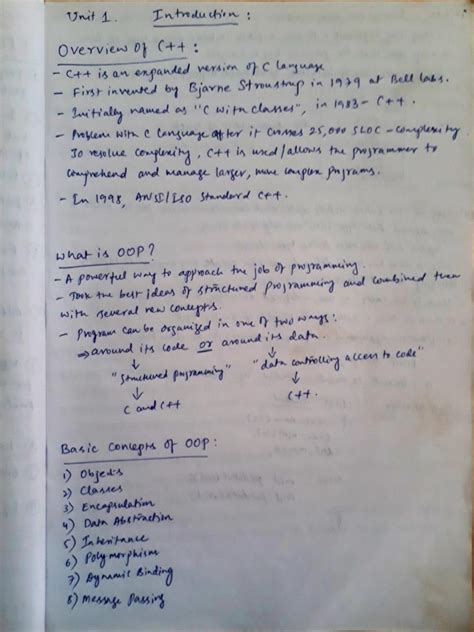 Unit 1. Introduction :
Overview of C++ :
- C++ is an expanded version of C language
- First invented by Bjarne Stroustrup in 1979 at Bell labs.
- Initially named as "C with classes", in 1983 - C++.
- Problem with C language after it crosses 25,000 SLOC - complexity
To resolve complexity, C++ is used/allows the programmer to
comprehend and manage larger, more complex programs.
- In 1998, ANSI/ISO standard C++.
What is OOP?
- A powerful way to approach the job of programming.
- Took the best ideas of structured programming and combined them
with several new concepts.
- Program can be organized in one of two ways:
⇒ around its code or around its data.
↓ ↓
"structured programming" "data controlling access to code"
↓ ↓
C and C++ C++.
Basic Concepts of OOP:
1) Objects
2) Classes
3) Encapsulation
4) Data Abstraction
5) Inheritance
6) Polymorphism
7) Dynamic Binding
8) Message Passing